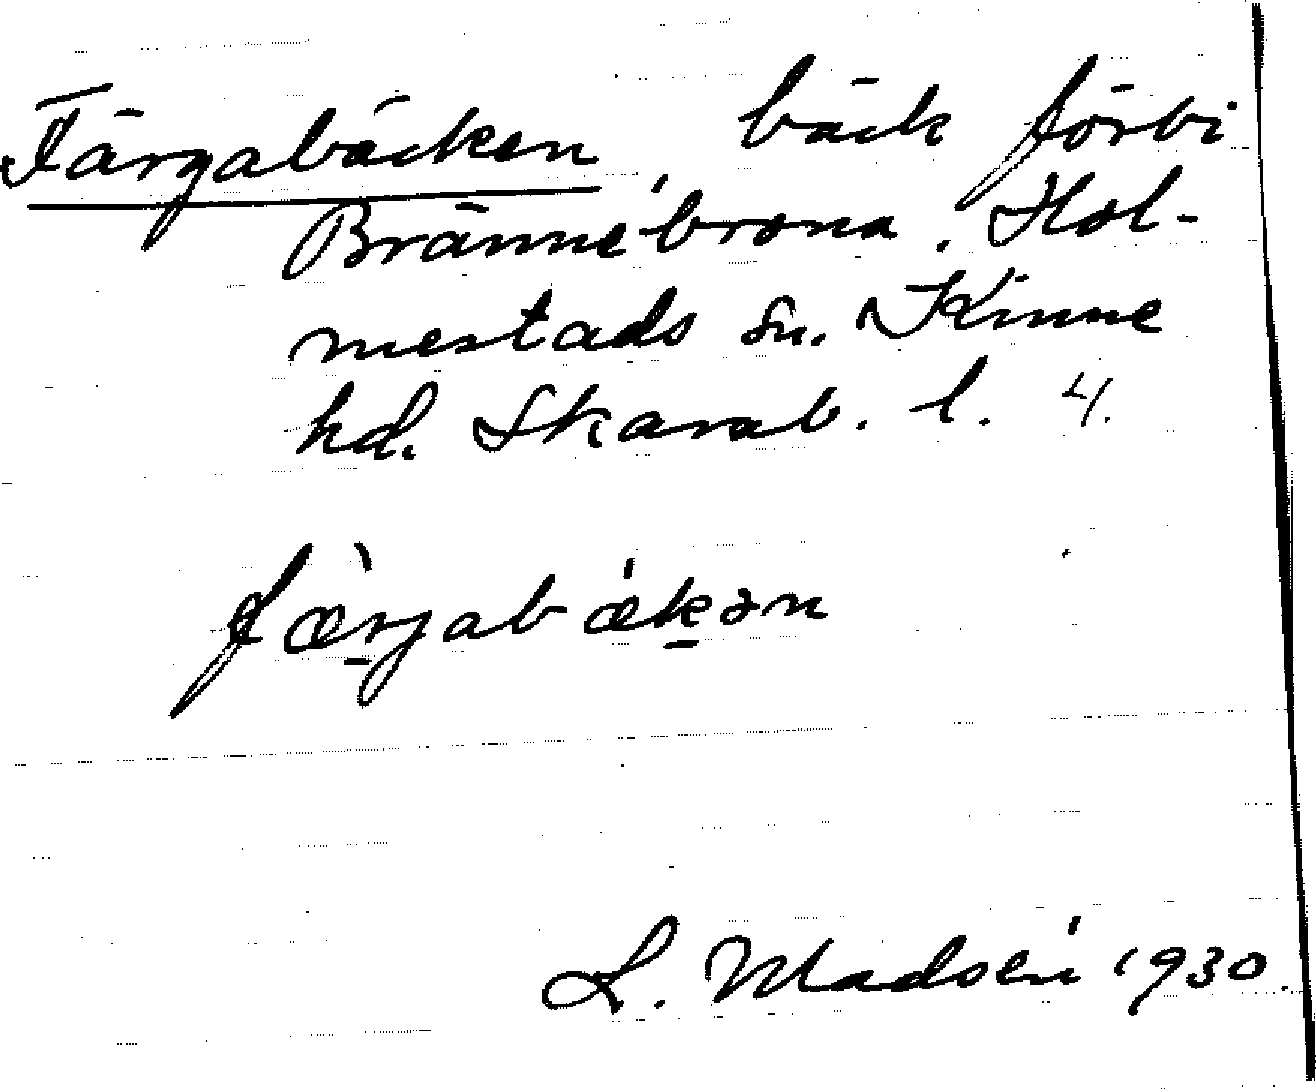 Färgabäcken, bäck förbi
Brännebrona. Hol-
mestads sn. Kinne
hd. Skarab. l. 4.
fæ̀rjabǽkən
L. Madsén 1930.